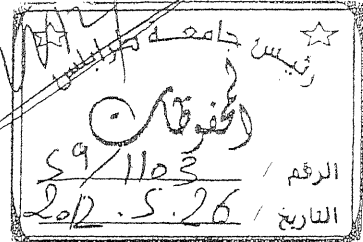 رئيس جامعة طرابلس
المحفوظات
الرقم / 59/1103
التاريخ / 2012.5.26